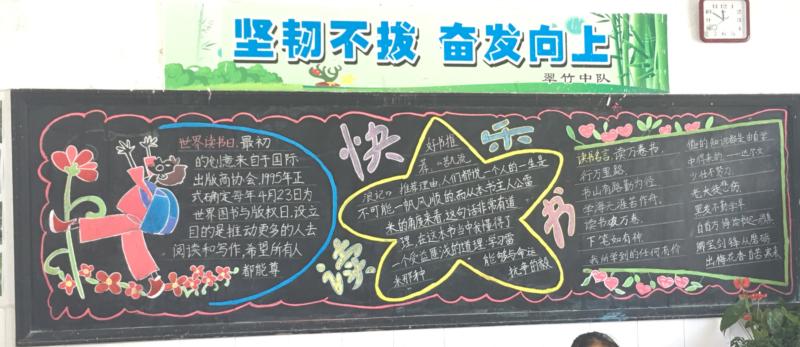 坚韧不拔 奋发向上
翠竹中队
世界读书日,最初
的创意来自于国际
出版商协会,1995年正
式确定每年4月23日为
世界图书与版权日,设立
目的是推动更多的人去
阅读和写作,希望所有人
都能尊
快乐读书
好书推
荐
浪记》推荐理由,人们都说一个人的一生是
不可能一帆风顺的,而从本书主人公雷
来的角度来看这句话非常有道
理,在这本书当中我懂得了
一个受益匪浅的道理,学习雷
来那种
能够与命运
抗争的
读书名言,读万卷书,
行万里路.
书山有路勤为径
学海无涯苦作舟.
读书破万卷
下笔如有神
我所学到的任何有价
值的知识都是由自学
中得来的——达尔文
少壮不努力
老大徒伤
黑发不知勤学早
白首方悔读书迟
宝剑锋从磨砺
出梅花香自苦寒来